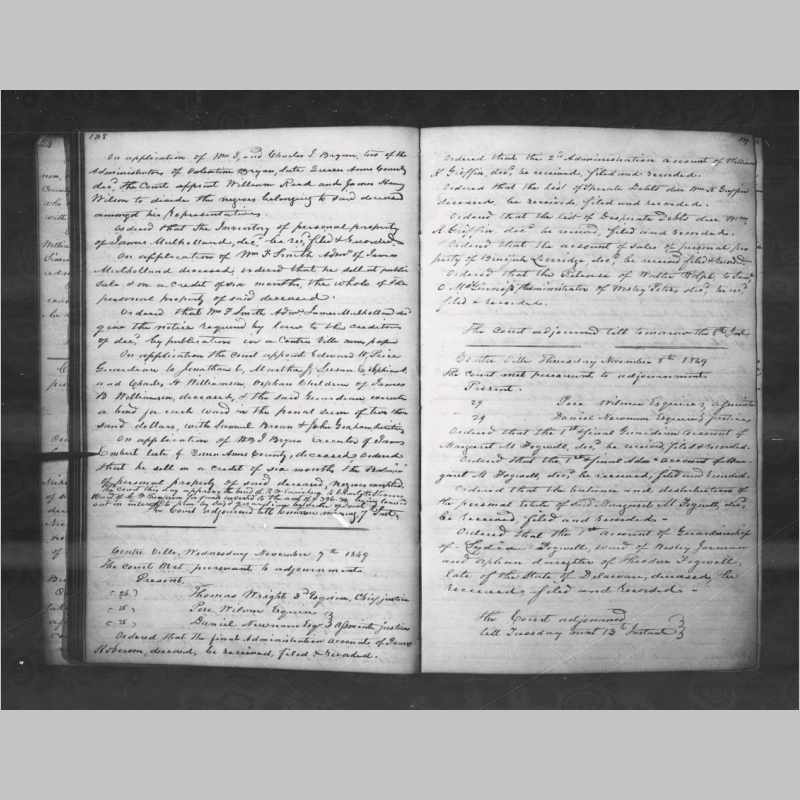 188
On application of Wm J. and Charles J. Bryan, two of the
Administrators of Valentine Bryan, late Queen Anns County
decd, the Court appoint William Reed and James
Wilson to divide the negroes belonging to said deceased
amongst his Representatives.
Ordered that the Inventory of personal property
of James Mulholland, decd be recd, filed & recorded.
On application of Wm F. Smith Admr of James
Mulholland deceased, ordered that he sell at public
Sale & on a credit of six months, the whole of the
personal property of said deceased.
Ordered that Wm F. Smith Admr James Mulholland decd
give the notice required by law to the creditors
of decd by publication in a Centre Ville news paper
On application the Court appoint Edward W.
Guardian to Jonathan C, Martha J, Susan C,
and Charles H Williamson, Orphan Children of James
B Williamson, deceased, & the said Guardian execute
a bond for each ward in the penal sum of two thou
sand dollars, with Samuel Brown & John
On application of Wm J Bryan executor of James
late of Queen Anns County, deceased Ordered
that he sell on a credit of six months the Residue
of personal property of said deceased, Negroes excepted.
The Court this day approves the bond of
out in interest
The Court adjourned till tomorrow morning 7th Inst.
Centre Ville, Wednesday November 7th 1849
The Court Met pursuant to adjournment
Present,
Thomas Wright 3d Esquire, Chief justice
Pere Wilmer Esquire
Daniel Newnam Esqr } associate justices
Ordered that the final Administration account of James
Roberson, deceased, be received, filed & recorded.
Ordered that the 2d Administration account of William
R Griffin, decd be received, filed and recorded.
Ordered that the list of Sperate Debts due Wm R Griffin
deceased, be received, filed and recorded.
Ordered that the list of Desperate Debts due Wm
R Griffin, decd be received, filed and recorded.
Ordered that the account of sales of personal pro
perty of Benjamin decd be received filed & recorded
Ordered that the Release of Walter to
O. Administrator of Wesley decd be recd
filed & recorded.
The Court adjourned till tomorrow the 8th Inst
Centre Ville Thursday November 8th 1849
The Court met pursuant to adjournment
Present.
29 Pere Wilmer Esquire } associate
29 Daniel Newnam Esquire } justices
Ordered that the 1st & final Guardian account of
Margaret M. Fogwell, decd be received, filed & recorded.
Ordered that the 1st & final Admn account of Mar
garet M. Fogwell, decd be received, filed and recorded.
Ordered that the balance and distribution of
the personal estate of said Margaret M. Fogwell, decd
be received, filed and recorded -
Ordered that the 1st account of Guardianship
of Lydia Fogwell, ward of Wesley Jarman
and Orphan daughter of Theodore Fogwell,
late of the State of Delaware, deceased, be
received, filed and recorded -
the Court adjourned
till Tuesday next 13th Instant }